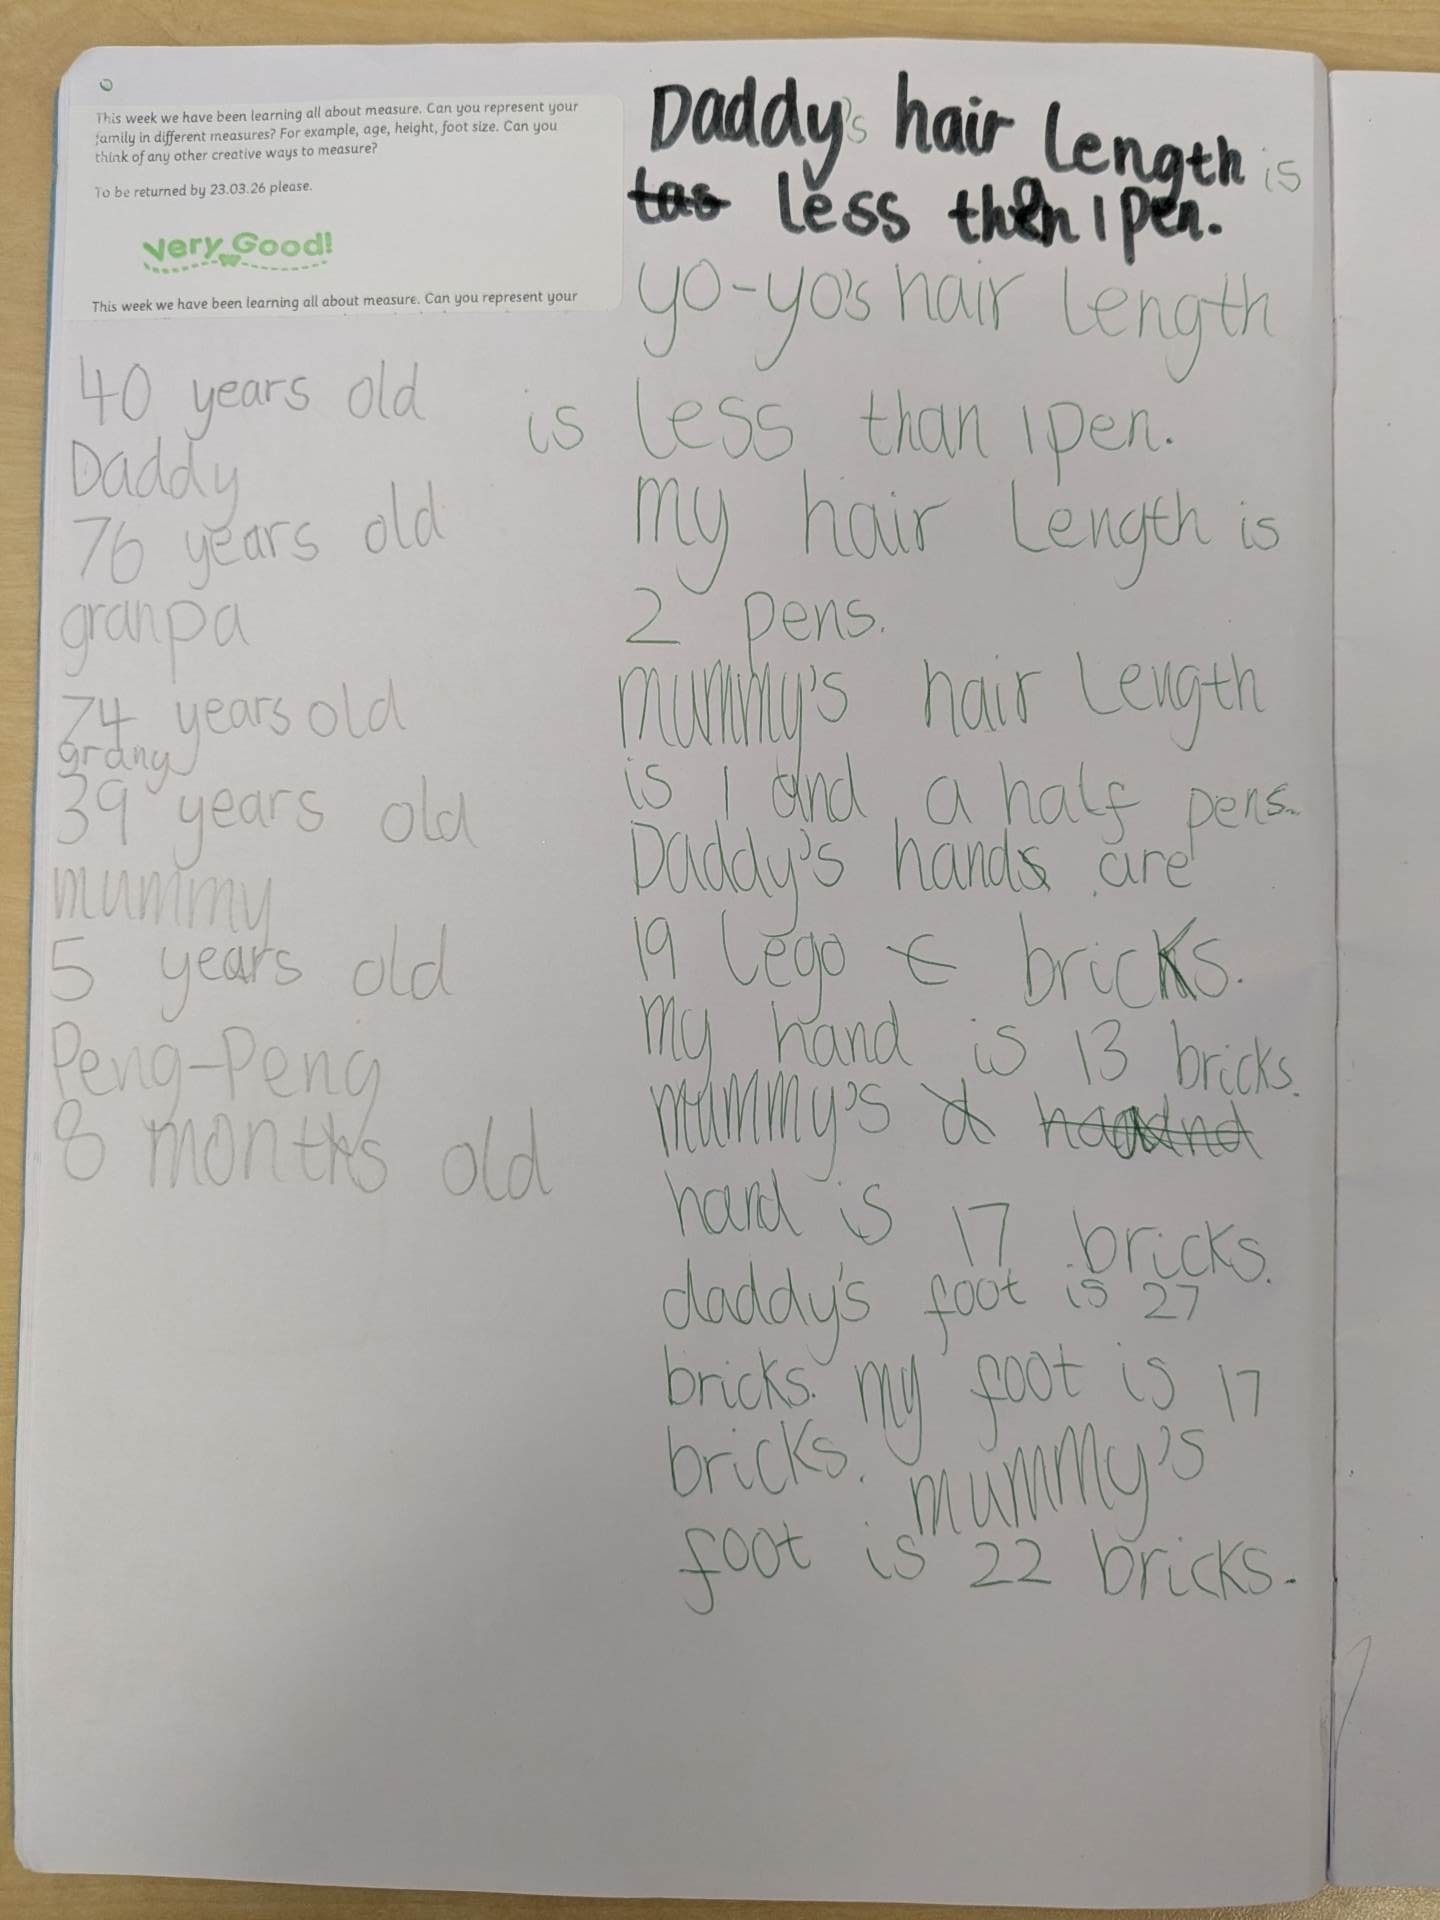 This week we have been learning all about measure. Can you represent your
family in different measures? For example, age, height, foot size. Can you
think of any other creative ways to measure?
To be returned by 23.03.26 please.
Very Good!
This week we have been learning all about measure. Can you represent your
40 years old
Daddy
76 years old
granpa
74 years old
grany
39 years old
mummy
5 years old
Peng-Peng
8 months old
Daddy's hair length is
less than 1 pen.
yo-yo's hair length
is less than 1 pen.
my hair length is
2 pens.
mummy's hair length
is 1 and a half pens.
Daddy's hands are
19 lego bricks.
my hand is 13 bricks.
mummy's
hand is 17 bricks.
daddy's foot is 27
bricks. my foot is 17
bricks. mummy's
foot is 22 bricks.